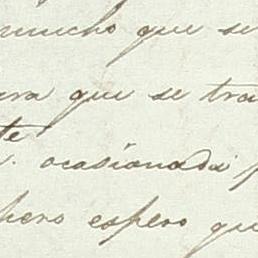 mucho que se
que se tra
te
ocasionada
espero qu